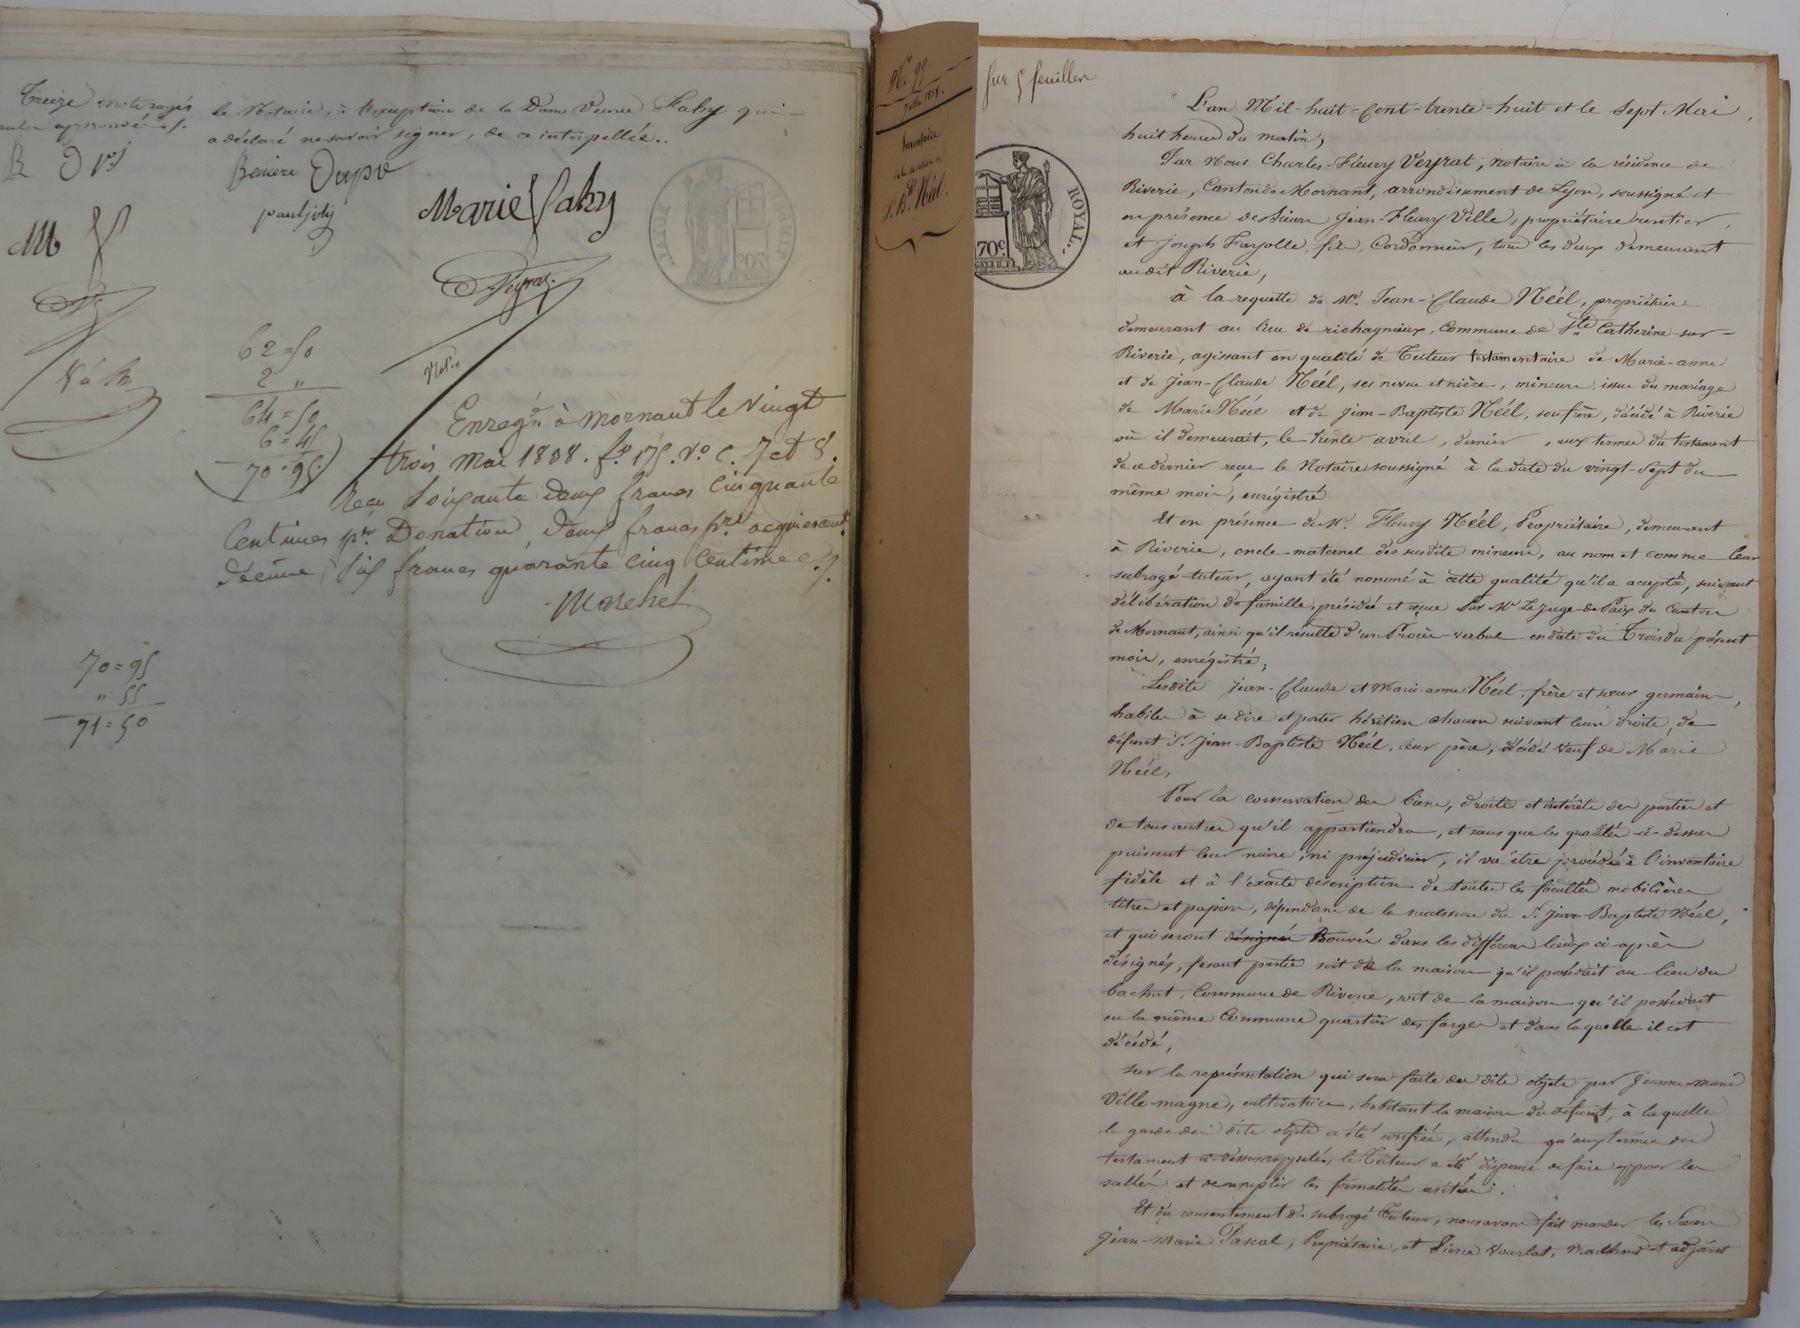 Treize mots rayés
nuls approuvés ./.
le Notaire, à l'exception de la Dame Veuve Fahy qui
a déclaré ne savoir signer, de ce interpellée..
Dupré
Marie Fahy
paul joly
Veyrat
Not.re
62=50
2 "
64=50
6=45
70=95
Enreg.é à Mornant le Vingt
trois Mai 1838. f.o 175. V.o C. 7 et 8.
Reçu Soixante deux francs Cinquante
Centimes p.r Donation, deux francs p.r acquiescent
décime, Six francs quarante cinq Centimes ./.
70=95
" 55
71=50
N.o 99
7 Mai 1838.
Inventaire
J. B. Néel.
Sur 5 feuilles
ROYAL
70 c.
L'an Mil-huit-Cent-trente-huit et le Sept Mai,
huit heures du matin,
Par Nous Charles-Fleury Veyrat, notaire à la résidence de
Riverie, Canton de Mornant, arrondissement de Lyon, soussigné et
en présence des Sieurs Jean-Fleury Ville, propriétaire rentier,
et Joseph Fayolle, fils, Cordonnier, tous les deux demeurant
audit Riverie,
à la requette de M.r Jean-Claude Néel, propriétaire
demeurant au lieu de richagnieux, Commune de S.te Catherine-sur-
Riverie, agissant en qualité de Tuteur testamentaire de Marie-anne
et de Jean-Claude Néel, ses niveu et nièce, mineurs issus du mariage
de Marie Néel et de Jean-Baptiste Néel, son frère, décédé à Riverie
où il demeurait, le trente avril, dernier, aux termes du testament
de ce dernier reçu le Notaire soussigné à la date du vingt-Sept du
même mois, enrégistré
Et en présence de M.r Fleury Néel, Propriétaire, demeurant
à Riverie, oncle maternel des susdits mineurs, au nom et comme leur
subrogé-tuteur, ayant été nommé à cette qualité qu'il a acceptée, suivant
délibération de famille, présidée et reçue Par M.r Le Juge-de-Paix du Canton
de Mornant, ainsi qu'il résulte d'un Procès-verbal en date du Trois du présent
mois, enrégistré,
Lesdits Jean-Claude et Marie-anne Néel, frère et sœur germains,
habiles à se dire et porter héritiers chacun suivant leurs droits, de
défunt S.r Jean-Baptiste Néel, leur père, décédé veuf de Marie
Néel,
Pour la conservation des biens, droits et intérêts des parties et
de tous autres qu'il appartiendra, et sans que les qualités ci-dessus
puissent leur nuire, ni préjudicier, il va être procédé à l'inventaire
fidèle et à l'exacte description de toutes les facultés mobilières
titres et papiers, dépendans de la succession du S.r Jean-Baptiste Néel,
et qui seront désignés trouvés dans les différens lieux ci-après
désignés, fesant partie soit de la maison qu'il possédait au lieu du
bachut, Commune de Riverie, soit de la maison qu'il possédait
en la même Commune quartier des farges et dans laquelle il est
décédé,
Sur la représentation qui sera faite des dits objets par Jeanne-Marie
Ville-magne, cultivatrice, habitant la maison du défunt, à laquelle
la garde des dits objets a été confiée, attendu qu'aux termes du
testament ci-dessus rappelé, le Tuteur a été dispensé de faire apposer les
scellés et de remplir les formalités usitées.
Et du consentement du subrogé Tuteur, nous avons fait mander les Sieurs
Jean-Marie Pascal, Propriétaire, et Pierre Vourlat, Marchand et adjoint